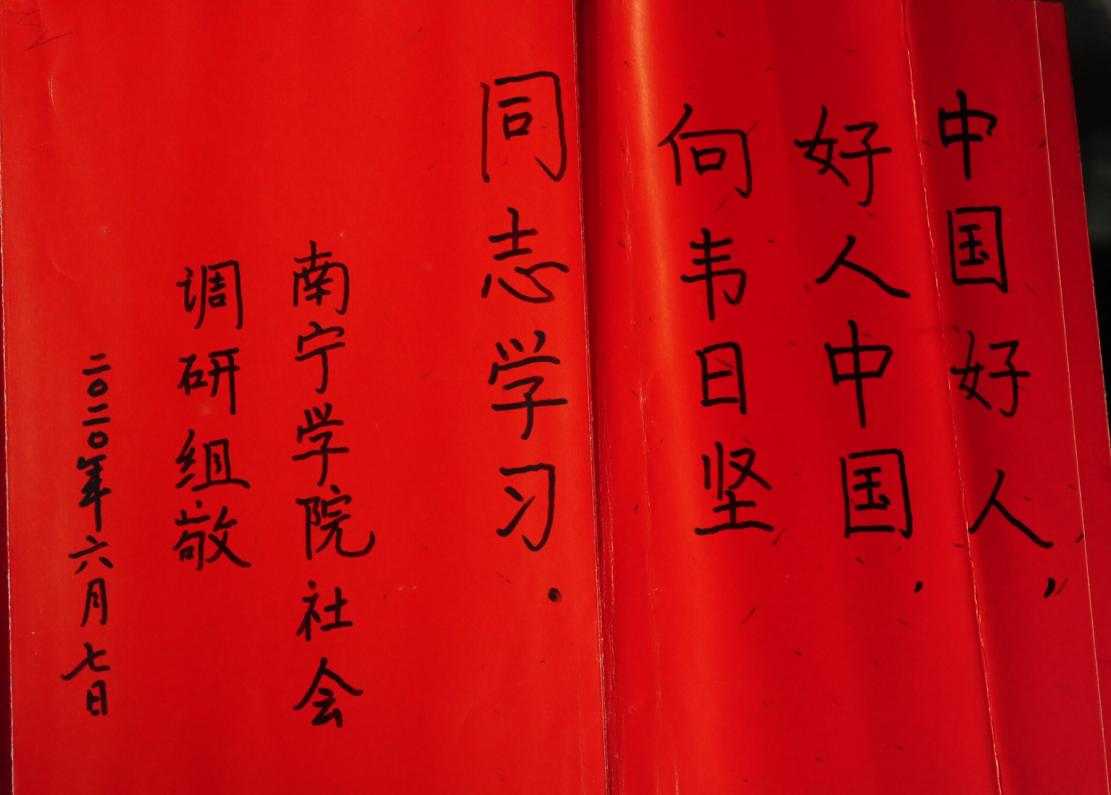 中国好人,
好人中国,
向韦日坚
同志学习.
南宁学院社会
调研组敬
二〇二〇年六月七日